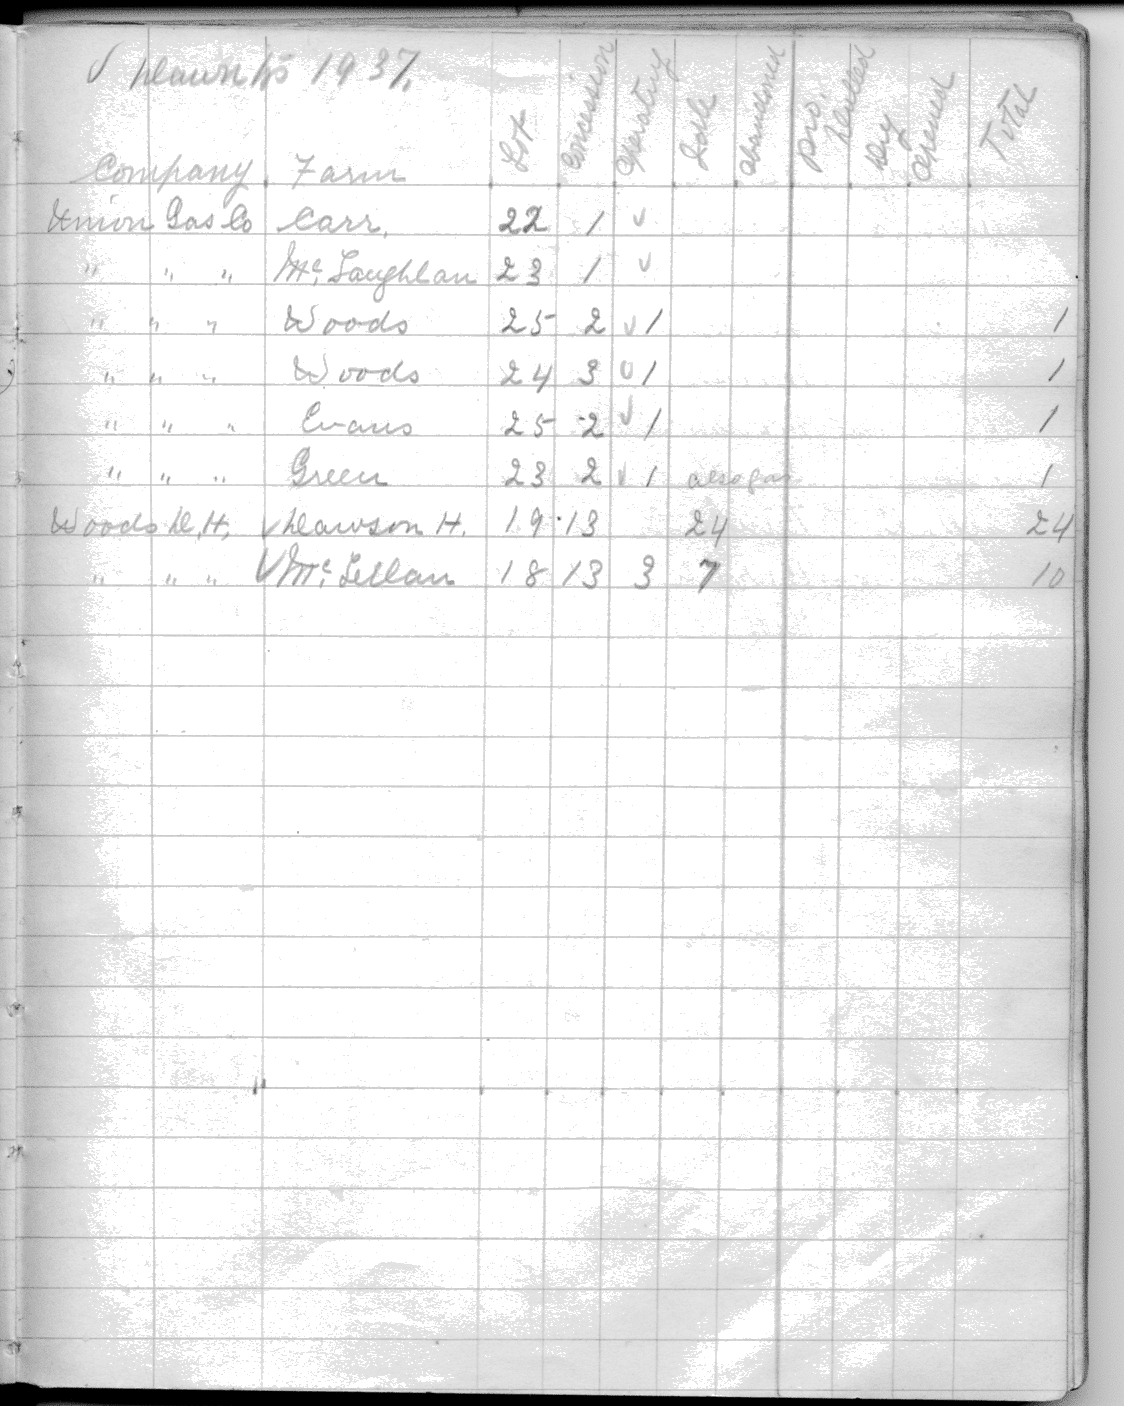 √ Dawn Tp 1937.
Company Farm Lot Concession Operating Idle abandoned pro. Drilled Dry Opened Total
Union Gas Co Carr, 22 1 √
" " " Mc. Laughlan 23 1 √
" " " Woods 25 2 √ 1 1
" " " Woods 24 3 √ 1 1
" " " Evans 25 2 √ 1 1
" " " Green 23 2 √ 1 also gas 1
Woods D. H, √ Dawson H. 19 13 24 24
" " " √ Mc. Lellan 18 13 3 7 10